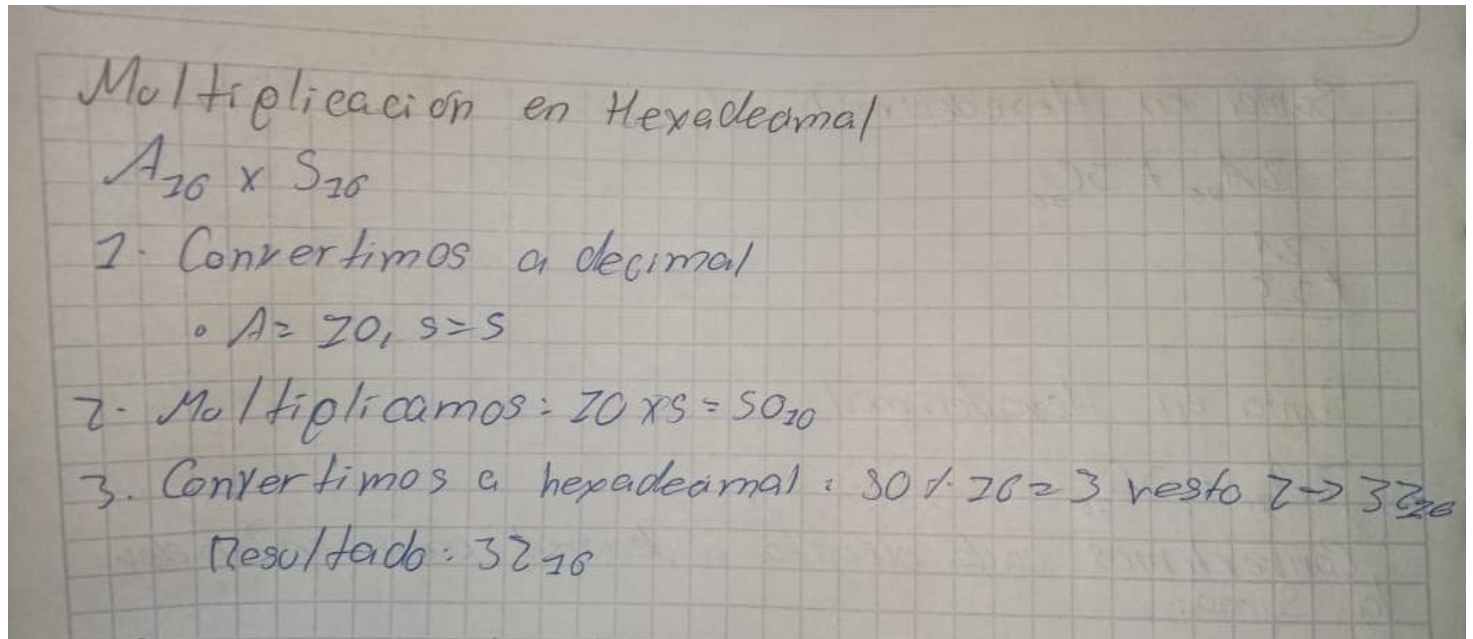 Multiplicación en Hexadecimal
A₁₆ x 5₁₆
1. Convertimos a decimal
• A = 10, 5 = 5
2. Multiplicamos: 10 x 5 = 50₁₀
3. Convertimos a hexadecimal: 50 ÷ 16 = 3 resto 2 → 32₁₆
Resultado: 32₁₆